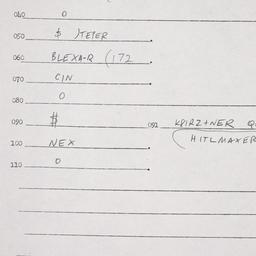 040 0
050 $ )TETER
060 BLEXA-Q (172
070 CIN
080 0
090 # 092 KPIRZ+NER Q
HITLMAXER
100 NEX
110 0